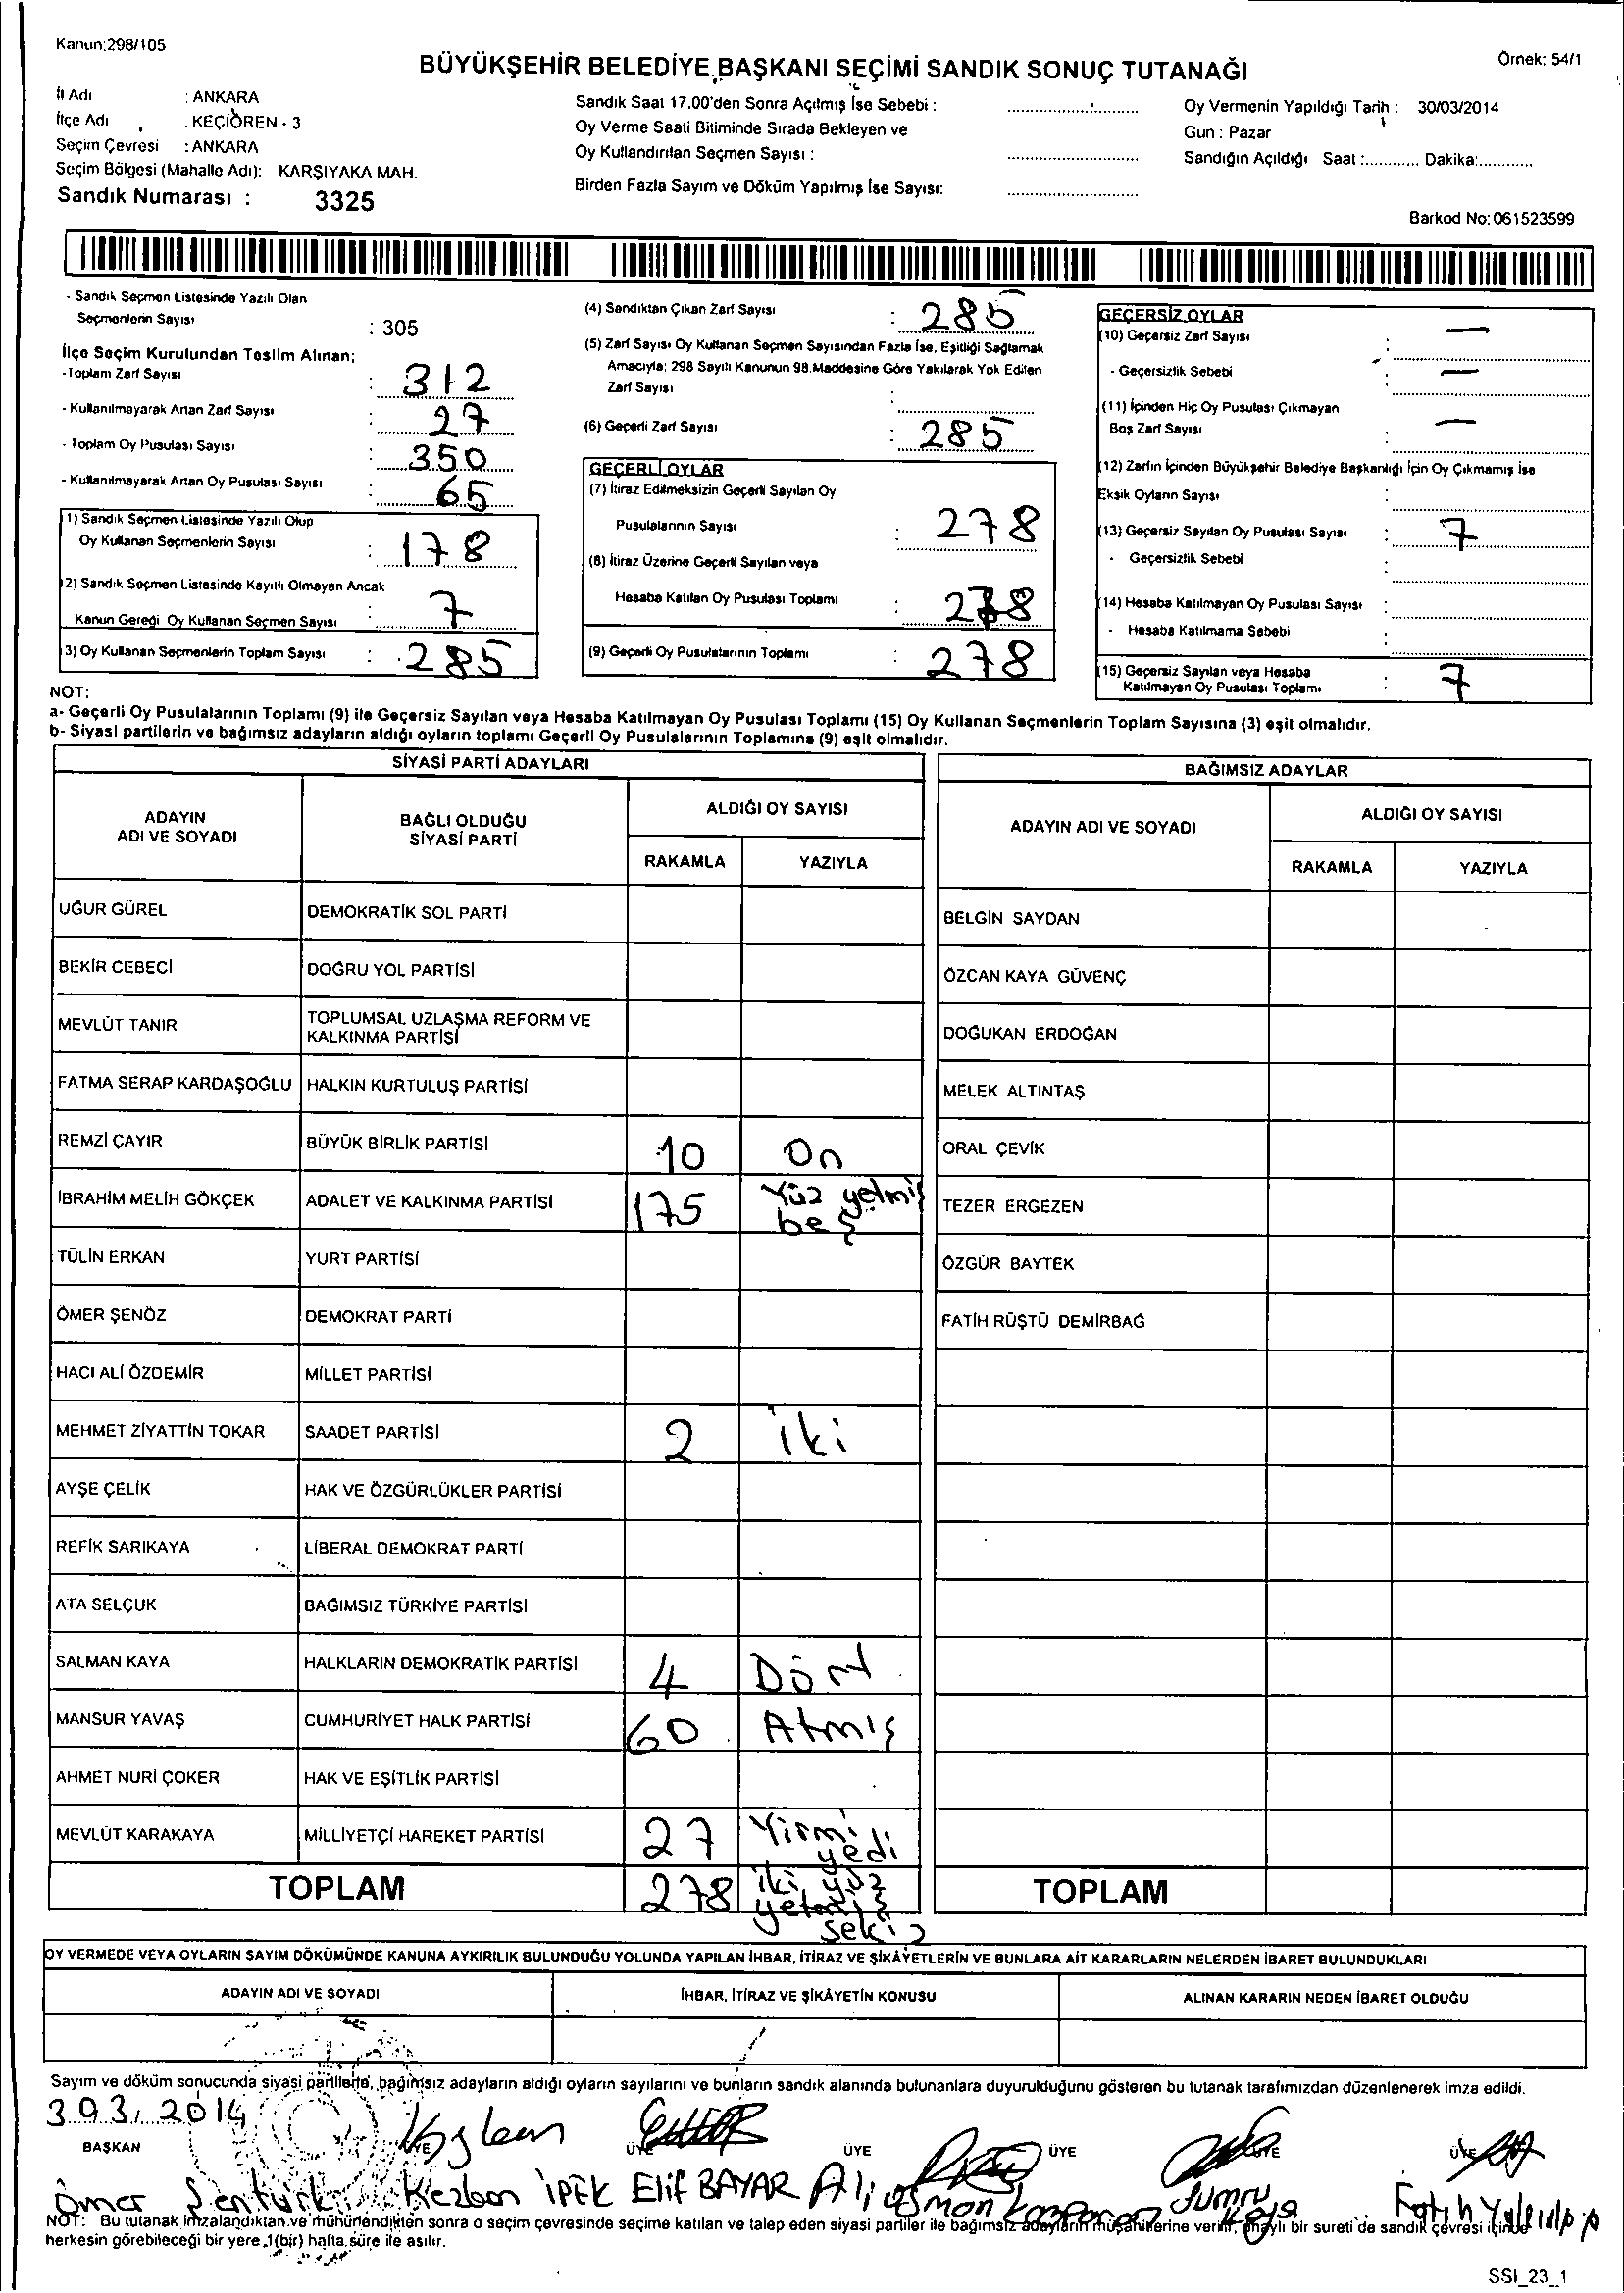 Kanun:298/105
Örnek: 54/1
BÜYÜKŞEHİR BELEDİYE BAŞKANI SEÇİMİ SANDIK SONUÇ TUTANAĞI
İl Adı : ANKARA
İlçe Adı : KEÇİÖREN - 3
Seçim Çevresi : ANKARA
Seçim Bölgesi (Mahalle Adı): KARŞIYAKA MAH.
Sandık Numarası : 3325
Sandık Saat 17.00'den Sonra Açılmış İse Sebebi :
Oy Verme Saati Bitiminde Sırada Bekleyen ve
Oy Kullandırılan Seçmen Sayısı :
Birden Fazla Sayım ve Döküm Yapılmış İse Sayısı:
Oy Vermenin Yapıldığı Tarih : 30/03/2014
Gün : Pazar
Sandığın Açıldığı Saat :............ Dakika:............
Barkod No:061523599
- Sandık Seçmen Listesinde Yazılı Olan
Seçmenlerin Sayısı : 305
İlçe Seçim Kurulundan Teslim Alınan;
-Toplam Zarf Sayısı : 312
- Kullanılmayarak Artan Zarf Sayısı : 27
- Toplam Oy Pusulası Sayısı : 350
- Kullanılmayarak Artan Oy Pusulası Sayısı : 65
1) Sandık Seçmen Listesinde Yazılı Olup
Oy Kullanan Seçmenlerin Sayısı : 178
2) Sandık Seçmen Listesinde Kayıtlı Olmayan Ancak
Kanun Gereği Oy Kullanan Seçmen Sayısı : 7
3) Oy Kullanan Seçmenlerin Toplam Sayısı : 285
(4) Sandıktan Çıkan Zarf Sayısı : 285
(5) Zarf Sayısı Oy Kullanan Seçmen Sayısından Fazla İse, Eşitliği Sağlamak
Amacıyla; 298 Sayılı Kanunun 98.Maddesine Göre Yakılarak Yok Edilen
Zarf Sayısı :
(6) Geçerli Zarf Sayısı : 285
GEÇERLİ OYLAR
(7) İtiraz Edilmeksizin Geçerli Sayılan Oy
Pusulalarının Sayısı : 278
(8) İtiraz Üzerine Geçerli Sayılan veya
Hesaba Katılan Oy Pusulası Toplamı : 278
(9) Geçerli Oy Pusulalarının Toplamı : 278
GEÇERSİZ OYLAR
(10) Geçersiz Zarf Sayısı : —
- Geçersizlik Sebebi : —
(11) İçinden Hiç Oy Pusulası Çıkmayan
Boş Zarf Sayısı : —
(12) Zarfın İçinden Büyükşehir Belediye Başkanlığı İçin Oy Çıkmamış İse
Eksik Oyların Sayısı :
(13) Geçersiz Sayılan Oy Pusulası Sayısı : 7
- Geçersizlik Sebebi :
(14) Hesaba Katılmayan Oy Pusulası Sayısı :
- Hesaba Katılmama Sebebi :
(15) Geçersiz Sayılan veya Hesaba
Katılmayan Oy Pusulası Toplamı : 7
NOT:
a- Geçerli Oy Pusulalarının Toplamı (9) ile Geçersiz Sayılan veya Hesaba Katılmayan Oy Pusulası Toplamı (15) Oy Kullanan Seçmenlerin Toplam Sayısına (3) eşit olmalıdır.
b- Siyasi partilerin ve bağımsız adayların aldığı oyların toplamı Geçerli Oy Pusulalarının Toplamına (9) eşit olmalıdır.
SİYASİ PARTİ ADAYLARI
ADAYIN ADI VE SOYADI
BAĞLI OLDUĞU SİYASİ PARTİ
ALDIĞI OY SAYISI
RAKAMLA YAZIYLA
UĞUR GÜREL DEMOKRATİK SOL PARTİ
BEKİR CEBECİ DOĞRU YOL PARTİSİ
MEVLÜT TANIR TOPLUMSAL UZLAŞMA REFORM VE
KALKINMA PARTİSİ
FATMA SERAP KARDAŞOĞLU HALKIN KURTULUŞ PARTİSİ
REMZİ ÇAYIR BÜYÜK BİRLİK PARTİSİ 10 On
İBRAHİM MELİH GÖKÇEK ADALET VE KALKINMA PARTİSİ 175 Yüz yetmiş
beş
TÜLİN ERKAN YURT PARTİSİ
ÖMER ŞENÖZ DEMOKRAT PARTİ
HACI ALİ ÖZDEMİR MİLLET PARTİSİ
MEHMET ZİYATTİN TOKAR SAADET PARTİSİ 2 iki
AYŞE ÇELİK HAK VE ÖZGÜRLÜKLER PARTİSİ
REFİK SARIKAYA LİBERAL DEMOKRAT PARTİ
ATA SELÇUK BAĞIMSIZ TÜRKİYE PARTİSİ
SALMAN KAYA HALKLARIN DEMOKRATİK PARTİSİ 4 Dört
MANSUR YAVAŞ CUMHURİYET HALK PARTİSİ 60 Atmış
AHMET NURİ ÇOKER HAK VE EŞİTLİK PARTİSİ
MEVLÜT KARAKAYA MİLLİYETÇİ HAREKET PARTİSİ 27 Yirmi
yedi
TOPLAM 278 iki yüz
yetmiş
sekiz
BAĞIMSIZ ADAYLAR
ADAYIN ADI VE SOYADI
ALDIĞI OY SAYISI
RAKAMLA YAZIYLA
BELGİN SAYDAN
ÖZCAN KAYA GÜVENÇ
DOĞUKAN ERDOĞAN
MELEK ALTINTAŞ
ORAL ÇEVİK
TEZER ERGEZEN
ÖZGÜR BAYTEK
FATİH RÜŞTÜ DEMİRBAĞ
TOPLAM
OY VERMEDE VEYA OYLARIN SAYIM DÖKÜMÜNDE KANUNA AYKIRILIK BULUNDUĞU YOLUNDA YAPILAN İHBAR, İTİRAZ VE ŞİKÂYETLERİN VE BUNLARA AİT KARARLARIN NELERDEN İBARET BULUNDUKLARI
ADAYIN ADI VE SOYADI İHBAR, İTİRAZ VE ŞİKÂYETİN KONUSU ALINAN KARARIN NEDEN İBARET OLDUĞU
Sayım ve döküm sonucunda siyasi partilerle, bağımsız adayların aldığı oyların sayılarını ve bunların sandık alanında bulunanlara duyurulduğunu gösteren bu tutanak tarafımızdan düzenlenerek imza edildi.
3.03.2014
BAŞKAN ÜYE ÜYE ÜYE ÜYE ÜYE ÜYE
Ömer Şentürk Kezban İPEK Elif BAYAR Ali Osman Jumru Kaya Fatih
NOT: Bu tutanak imzalandıktan ve mühürlendikten sonra o seçim çevresinde seçime katılan ve talep eden siyasi partiler ile bağımsız adayların müşahitlerine verilir, onaylı bir sureti de sandık çevresi içinde
herkesin görebileceği bir yere 1(bir) hafta süre ile asılır.
SSI_23_1